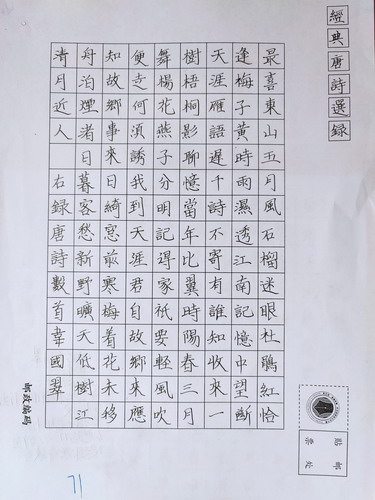 經典唐詩選録
最喜東山五月風石榴迷眼杜鵑紅恰
逢梅子黄時雨濕透江南記憶中望斷
天涯雁語遲千詩不寄有誰知收來一
樹梧桐影聊憶當年比翼時陽春三月
舞楊花燕子分明記得家祇要輕風吹
便走何湏誘我到天涯君自故鄉來應
知故鄉事來日綺窓前寒梅着花未移
舟泊煙渚日暮客愁新野曠天低樹江
清月近人 右録唐詩數首韋國翠
郵政編碼
貼郵
票處
71